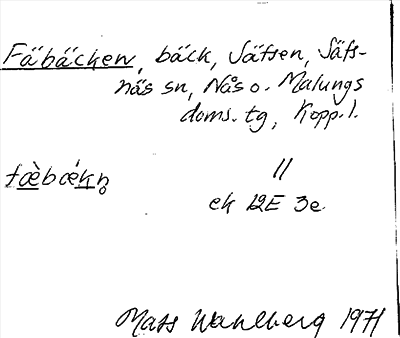 Fäbäcken, bäck, Säfsen, Säfs-
näs sn, Nås o. Malungs
doms. tg, Kopp. l.
fæ̀bækn̥ //
ek 12E 3e
Mats Wahlberg 1971